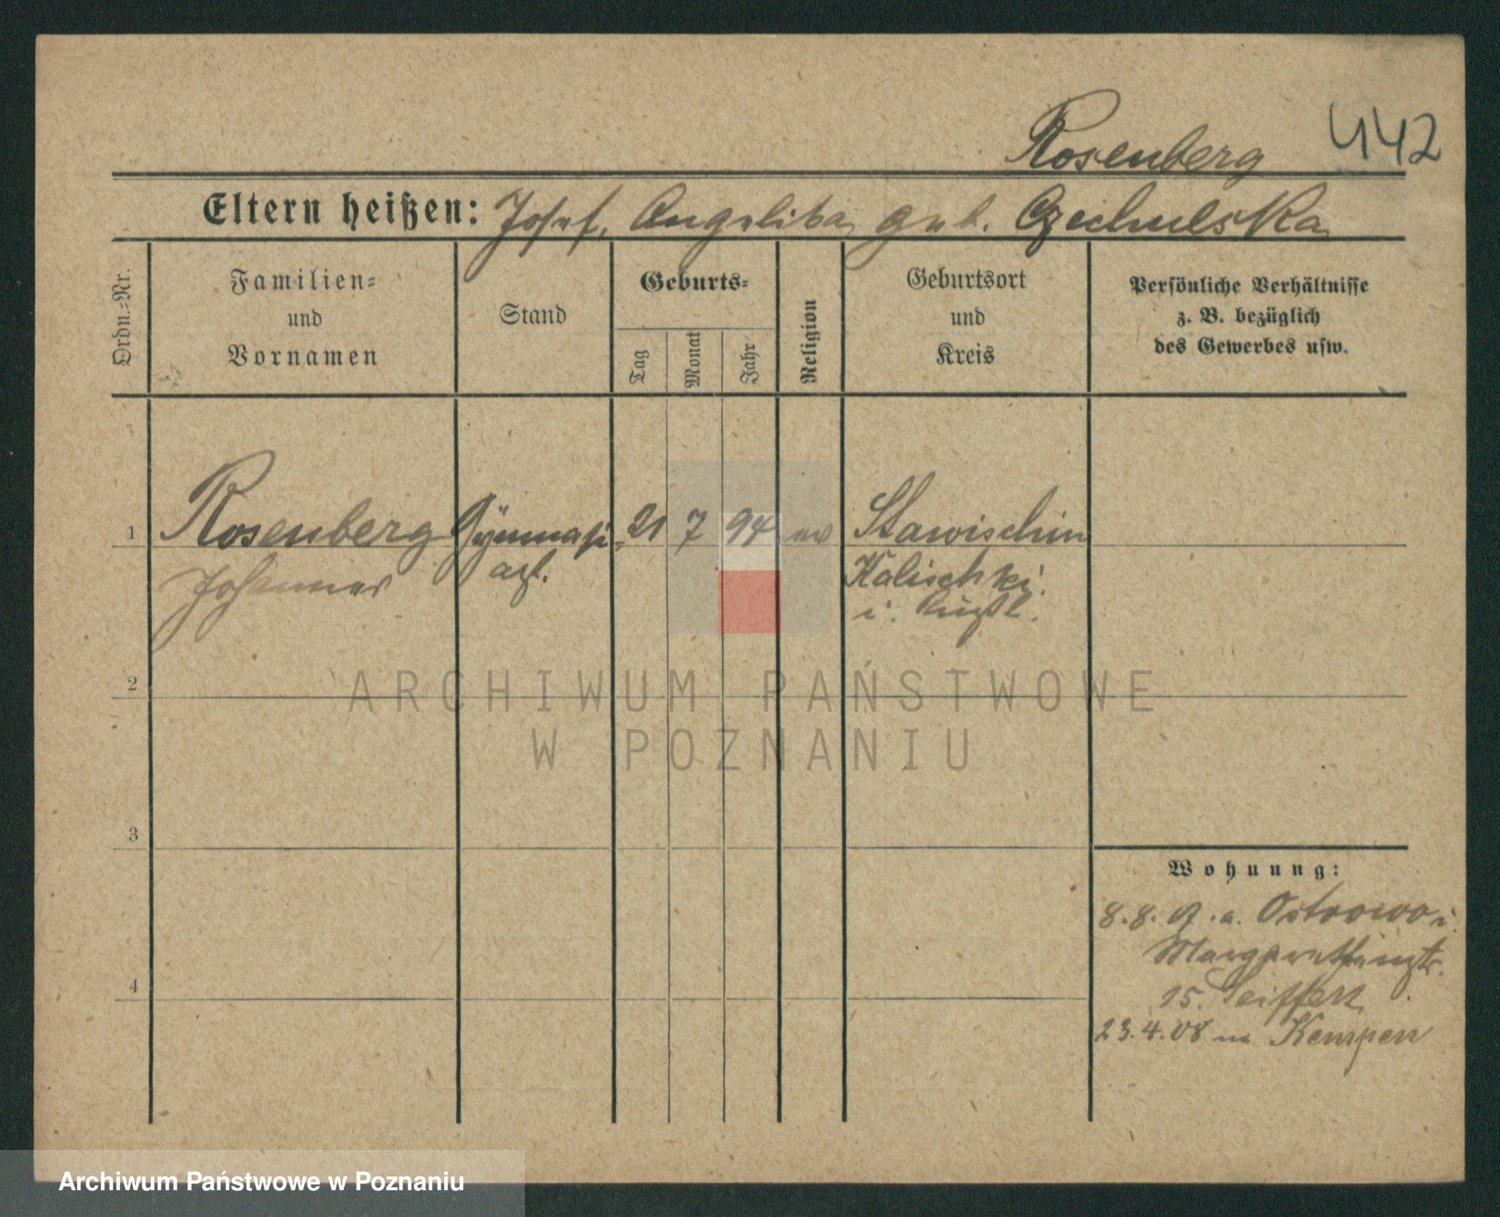 Rosenberg 442
Eltern heißen: Josef, Angelika geb. Czechulska
Ordn.-Nr.
Familien-
und
Vornamen
Stand
Geburts-
Tag
Monat
Jahr
Religion
Geburtsort
und
Kreis
Persönliche Verhältnisse
z. B. bezüglich
des Gewerbes usw.
1 Rosenberg Gymnasi- 21 7 94 ev Stawischin
Johannes ast. Kalisch
i. Rußl.
2
ARCHIWUM PAŃSTWOWE
W POZNANIU
3
Wohnung:
8.8. a. Ostrowo
Margarethenstr.
15. Seiffert
4
23.4.08 n Kempen
Archiwum Państwowe w Poznaniu